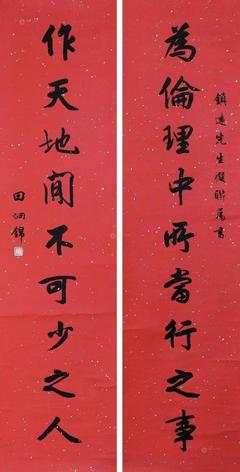 為倫理中所當行之事
鎮遠先生優聯屬書
作天地間不可少之人
田炯錦